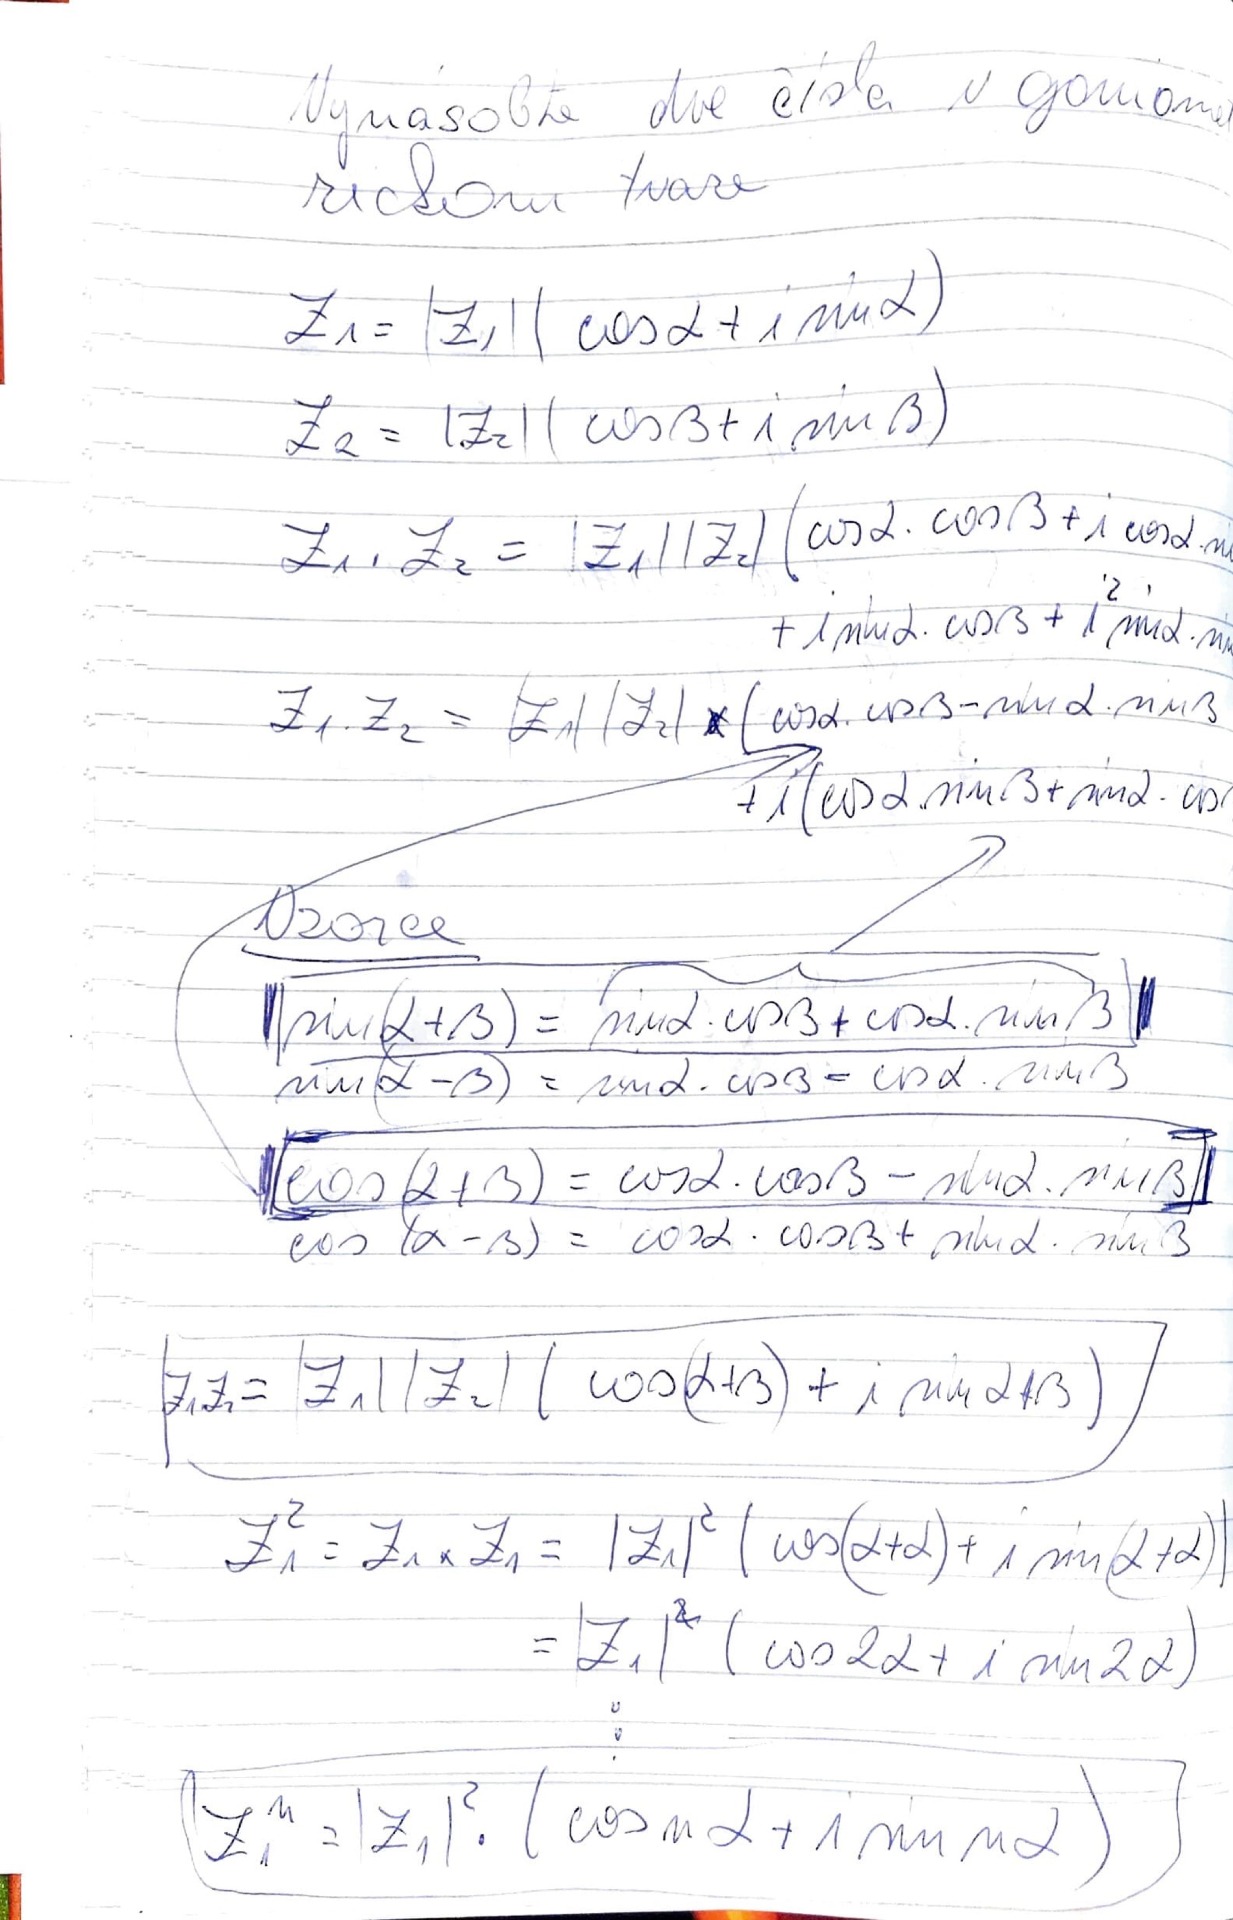 Vynásobte dve čísla v goniome
rickom tvare
Z₁ = |Z₁| ( cosα + i sinα)
Z₂ = |Z₂| ( cosβ + i sinβ)
Z₁ . Z₂ = |Z₁| |Z₂| (cosα . cosβ + i cosα .
+ i sinα . cosβ + i² sinα .
Z₁ . Z₂ = |Z₁| |Z₂| x (cosα . cosβ - sinα . sinβ
+ i(cosα . sinβ + sinα . cos
Vzorce
sin(α+β) = sinα . cosβ + cosα . sinβ
sin(α-β) = sinα . cosβ - cosα . sinβ
cos(α+β) = cosα . cosβ - sinα . sinβ
cos(α-β) = cosα . cosβ + sinα . sinβ
Z₁Z₂ = |Z₁| |Z₂| ( cos(α+β) + i sin α+β )
Z₁² = Z₁ x Z₁ = |Z₁|² ( cos(α+α) + i sin(α+α))
= |Z₁|² ( cos2α + i sin2α)
⋮
Z₁ⁿ = |Z₁|² . ( cos nα + i sin nα )